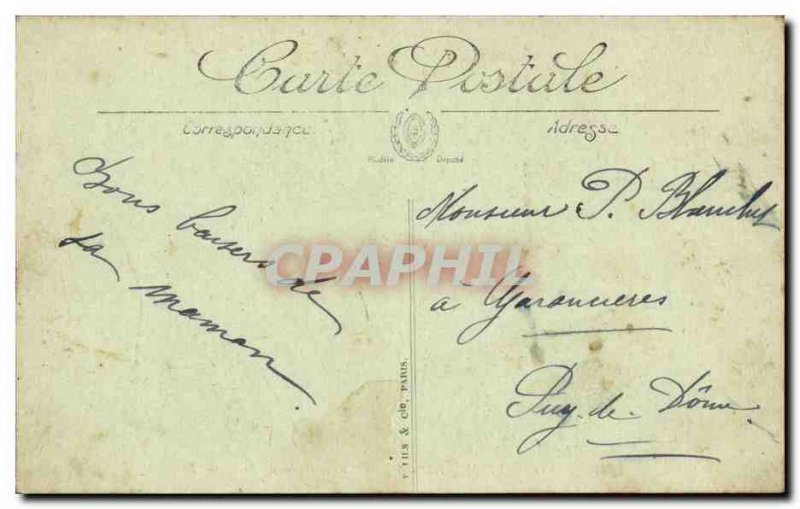 Carte Postale
Correspondance
Adresse
Modèle Déposé
Bons baisers de
sa maman
CPAPHIL
Monsieur P. Blanchet
à
Puy-de-Dôme
FILS & Cie, PARIS.